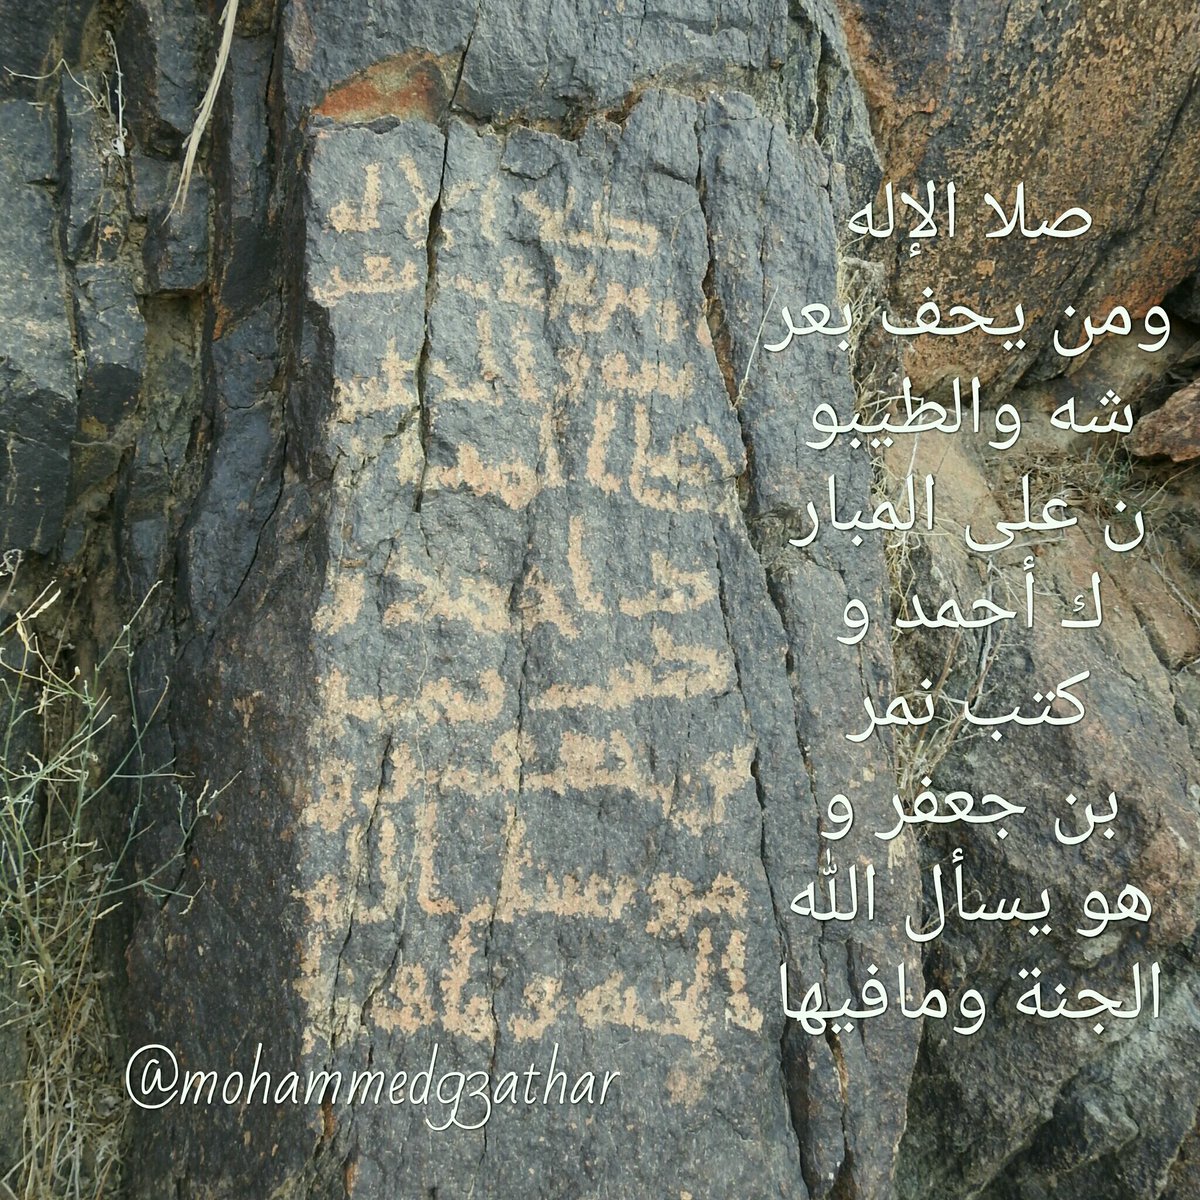 صلا الإله
ومن يحف بعر
شه والطيبو
ن على المبار
ك أحمد و
كتب نمر
بن جعفر و
هو يسأل الله
الجنة ومافيها
@mohammedgzathar